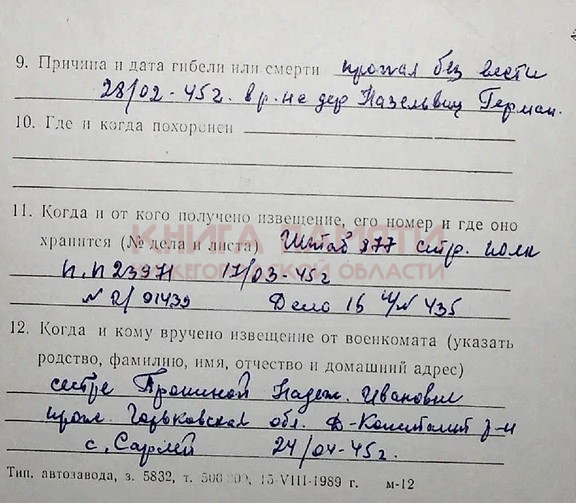 9. Причина и дата гибели или смерти пропал без вести
28/02-45г. в р-не дер Назельвиц Герман.
10. Где и когда похоронен
11. Когда и от кого получено извещение, его номер и где оно
хранится (№ дела и листа) Штаб 877 стр. полк
КНИГА ПАМЯТИ
НИЖЕГОРОДСКОЙ ОБЛАСТИ
п.п 23971 17/03-45г
№ 2/01439 Дело 16 435
12. Когда и кому вручено извещение от военкомата (указать
родство, фамилию, имя, отчество и домашний адрес)
сестре Трошиной Надеж. Ивановне
прож. Горьковская обл. Д-Константин р-н
с. Сарлей 24/04-45г.
Тип. автозавода, з. 5832, т. 15-VIII-1989 г. м-12